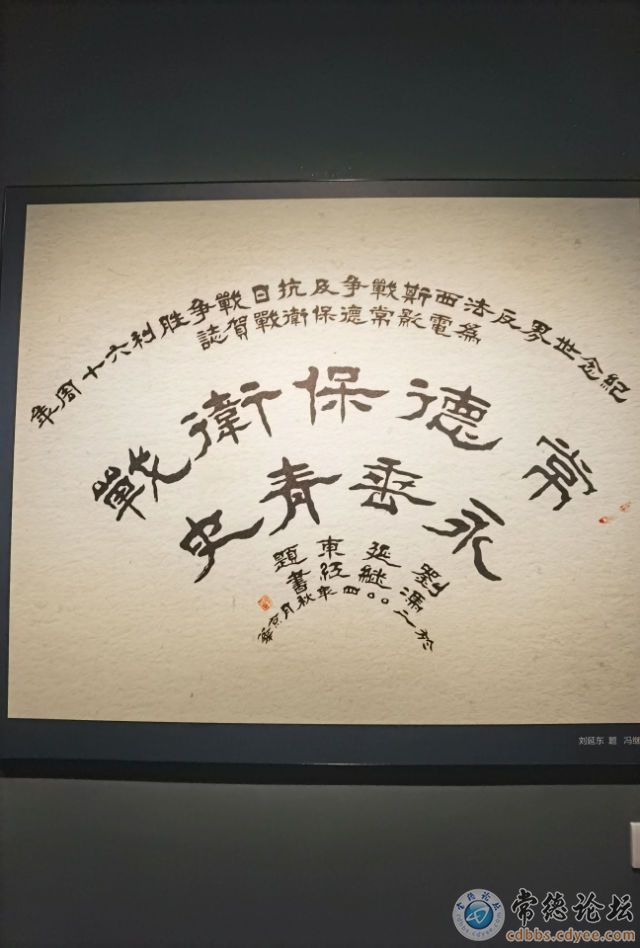 紀念世界反法西斯戰争及抗日戰争胜利六十周年
為電影常德保衛戰賀誌
常德保衛戰
永垂青史
劉延東題
馮継紅書
於二〇〇四年秋月京華
刘延东 题 冯继
常德论坛
常德论坛
cdbbs.cdyee.com